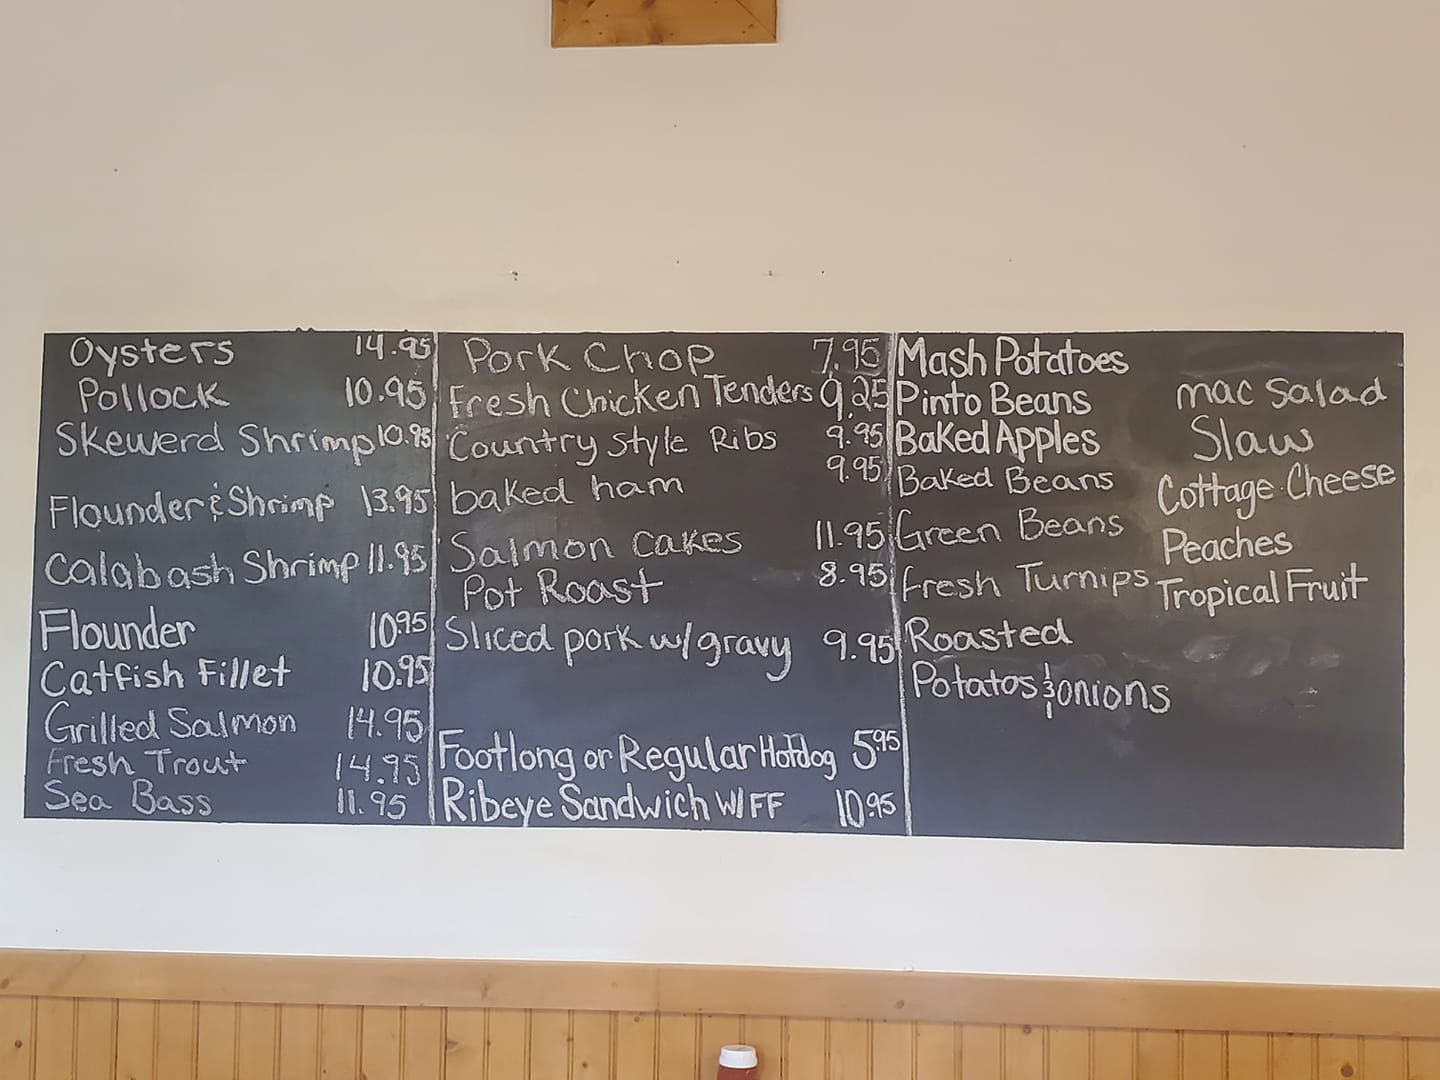 Oysters 14.95
Pollock 10.95
Skewerd Shrimp 10.95
Flounder & Shrimp 13.95
Calabash Shrimp 11.95
Flounder 10.95
Catfish Fillet 10.95
Grilled Salmon 14.95
Fresh Trout 14.95
Sea Bass 11.95
Pork Chop 7.95
Fresh Chicken Tenders 9.25
Country Style Ribs 9.95
baked ham 9.95
Salmon cakes 11.95
Pot Roast 8.95
Sliced pork w/gravy 9.95
Footlong or Regular Hotdog 5.95
Ribeye Sandwich W/FF 10.95
Mash Potatoes
Pinto Beans
Baked Apples
Baked Beans
Green Beans
Fresh Turnips
Roasted
Potatos & onions
mac Salad
Slaw
Cottage Cheese
Peaches
Tropical Fruit